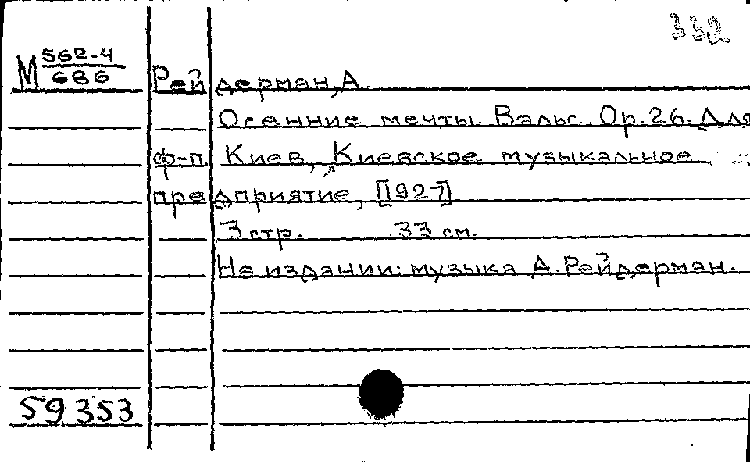 332
М 562-4
686
Рейдерман, А.
Осенние мечты. Вальс. Op.26. Для
ф-п. Киев, Киевское музыкальное
предприятие, [1927]
3 стр. 33 см.
На издании: музыка А. Рейдерман.
59353